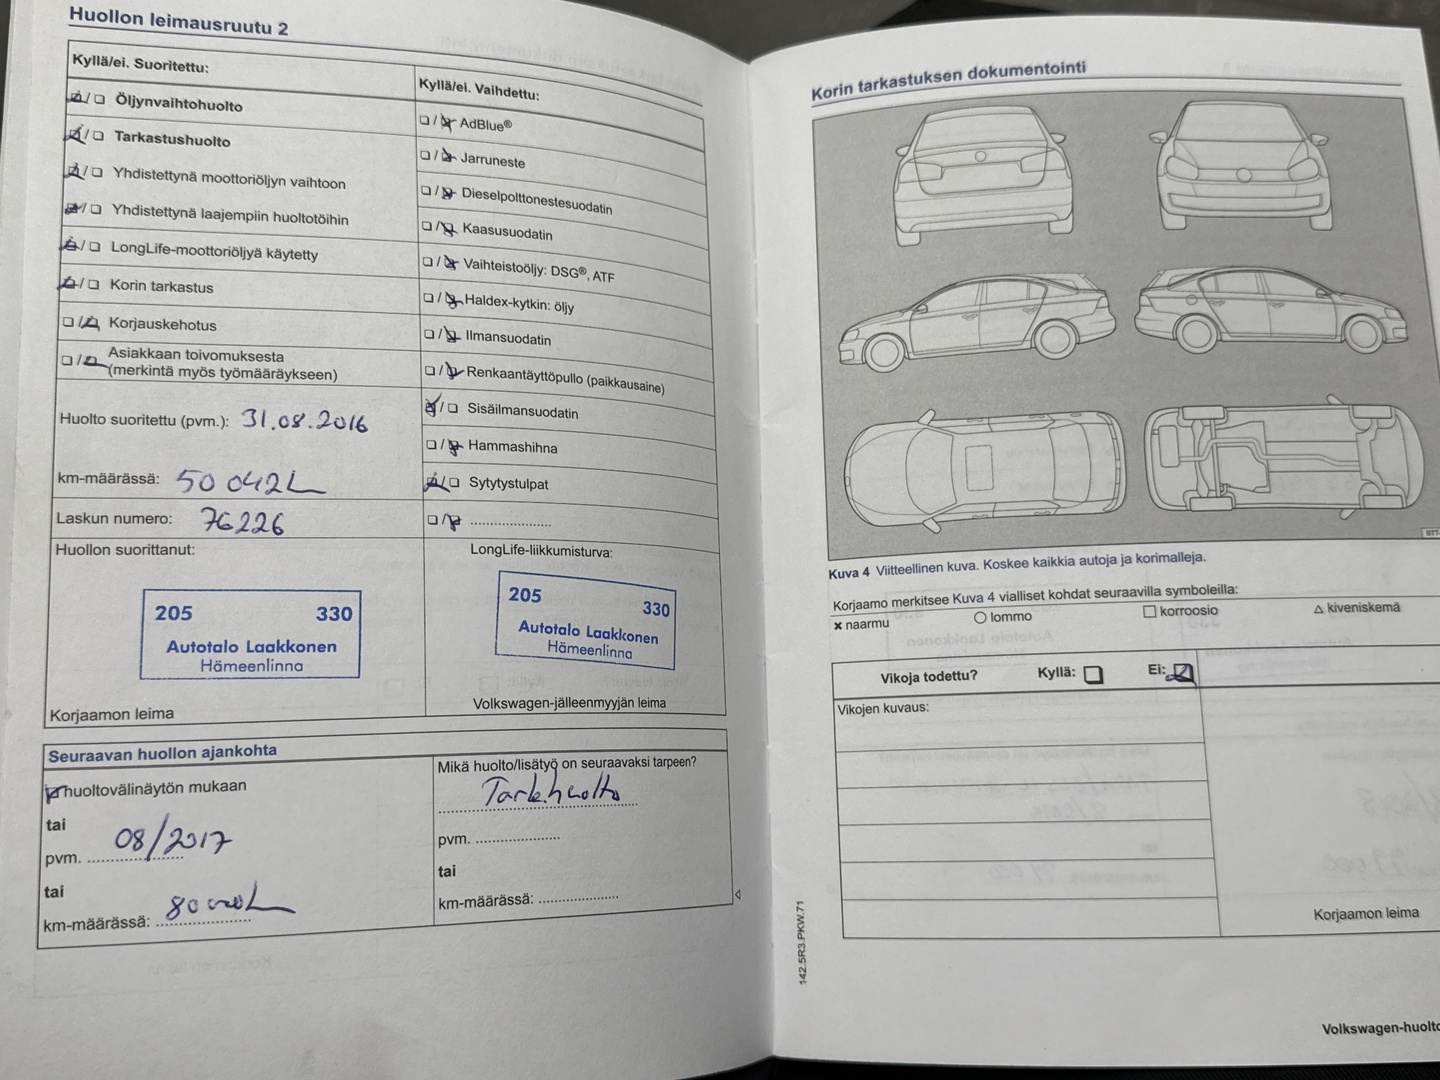 Huollon leimausruutu 2
Kyllä/ei. Suoritettu:
Öljynvaihtohuolto
Tarkastushuolto
Yhdistettynä moottoriöljyn vaihtoon
Yhdistettynä laajempiin huoltotöihin
LongLife-moottoriöljyä käytetty
Korin tarkastus
Korjauskehotus
Asiakkaan toivomuksesta
(merkintä myös työmääräykseen)
Huolto suoritettu (pvm.): 31.08.2016
km-määrässä: 50 042
Laskun numero: 76226
Huollon suorittanut:
205 330
Autotalo Laakkonen
Hämeenlinna
Korjaamon leima
Kyllä/ei. Vaihdettu:
AdBlue®
Jarruneste
Dieselpolttonestesuodatin
Kaasusuodatin
Vaihteistoöljy: DSG®, ATF
Haldex-kytkin: öljy
Ilmansuodatin
Renkaantäyttöpullo (paikkausaine)
Sisäilmansuodatin
Hammashihna
Sytytystulpat
....................
LongLife-liikkumisturva:
205 330
Autotalo Laakkonen
Hämeenlinna
Volkswagen-jälleenmyyjän leima
Seuraavan huollon ajankohta
huoltovälinäytön mukaan
tai
pvm. 08/2017
tai
km-määrässä:
Mikä huolto/lisätyö on seuraavaksi tarpeen?
Tark.huolto
pvm. ....................
tai
km-määrässä: ....................
Korin tarkastuksen dokumentointi
Kuva 4 Viitteellinen kuva. Koskee kaikkia autoja ja korimalleja.
Korjaamo merkitsee Kuva 4 vialliset kohdat seuraavilla symboleilla:
× naarmu ○ lommo □ korroosio △ kiveniskemä
Vikoja todettu? Kyllä: Ei:
Vikojen kuvaus:
Korjaamon leima
142.5R3.PKW.71
Volkswagen-huolto